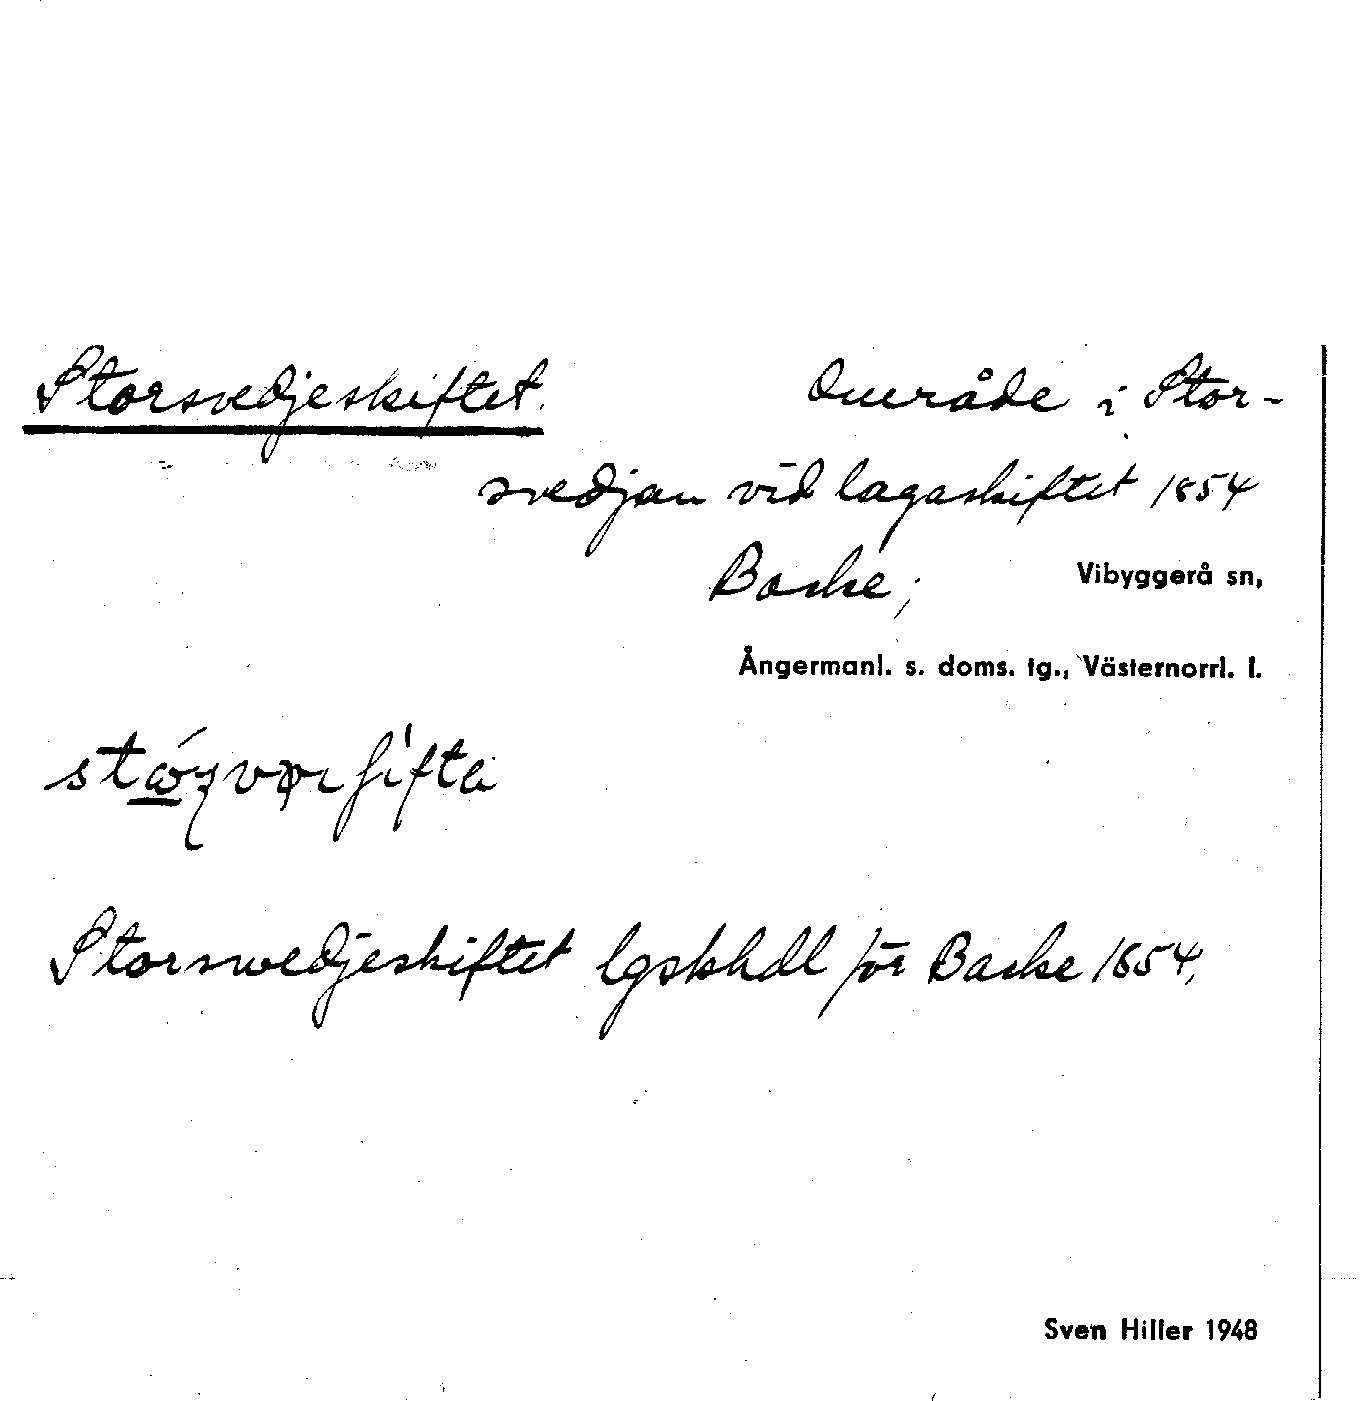 Storsvedjeskiftet. Område i Stor-
svedjan vid lagaskiftet 1854
Baske; Vibyggerå sn,
Ångermanl. s. doms. tg., Västernorrl. l.
Storswedjeskiftet lgskhdl för Baske 1854,
Sven Hiller 1948